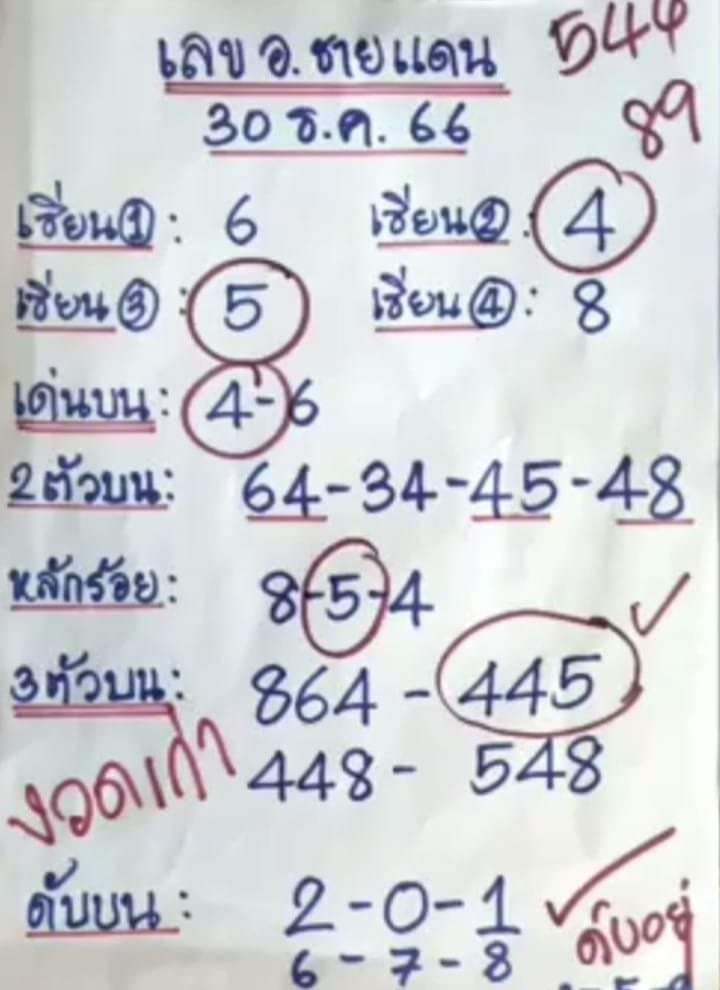 เลข อ. ชายแดน 544
30 ธ.ค. 66 89
เซียน① : 6 เซียน② : 4
เซียน③ : 5 เซียน④ : 8
เด่นบน : 4-6
2ตัวบน: 64-34-45-48
หลักร้อย: 8-5-4
3ตัวบน: 864 - 445
งวดเก่า 448 - 548
ดับบน : 2-0-1 ดับอยู่
6-7-8